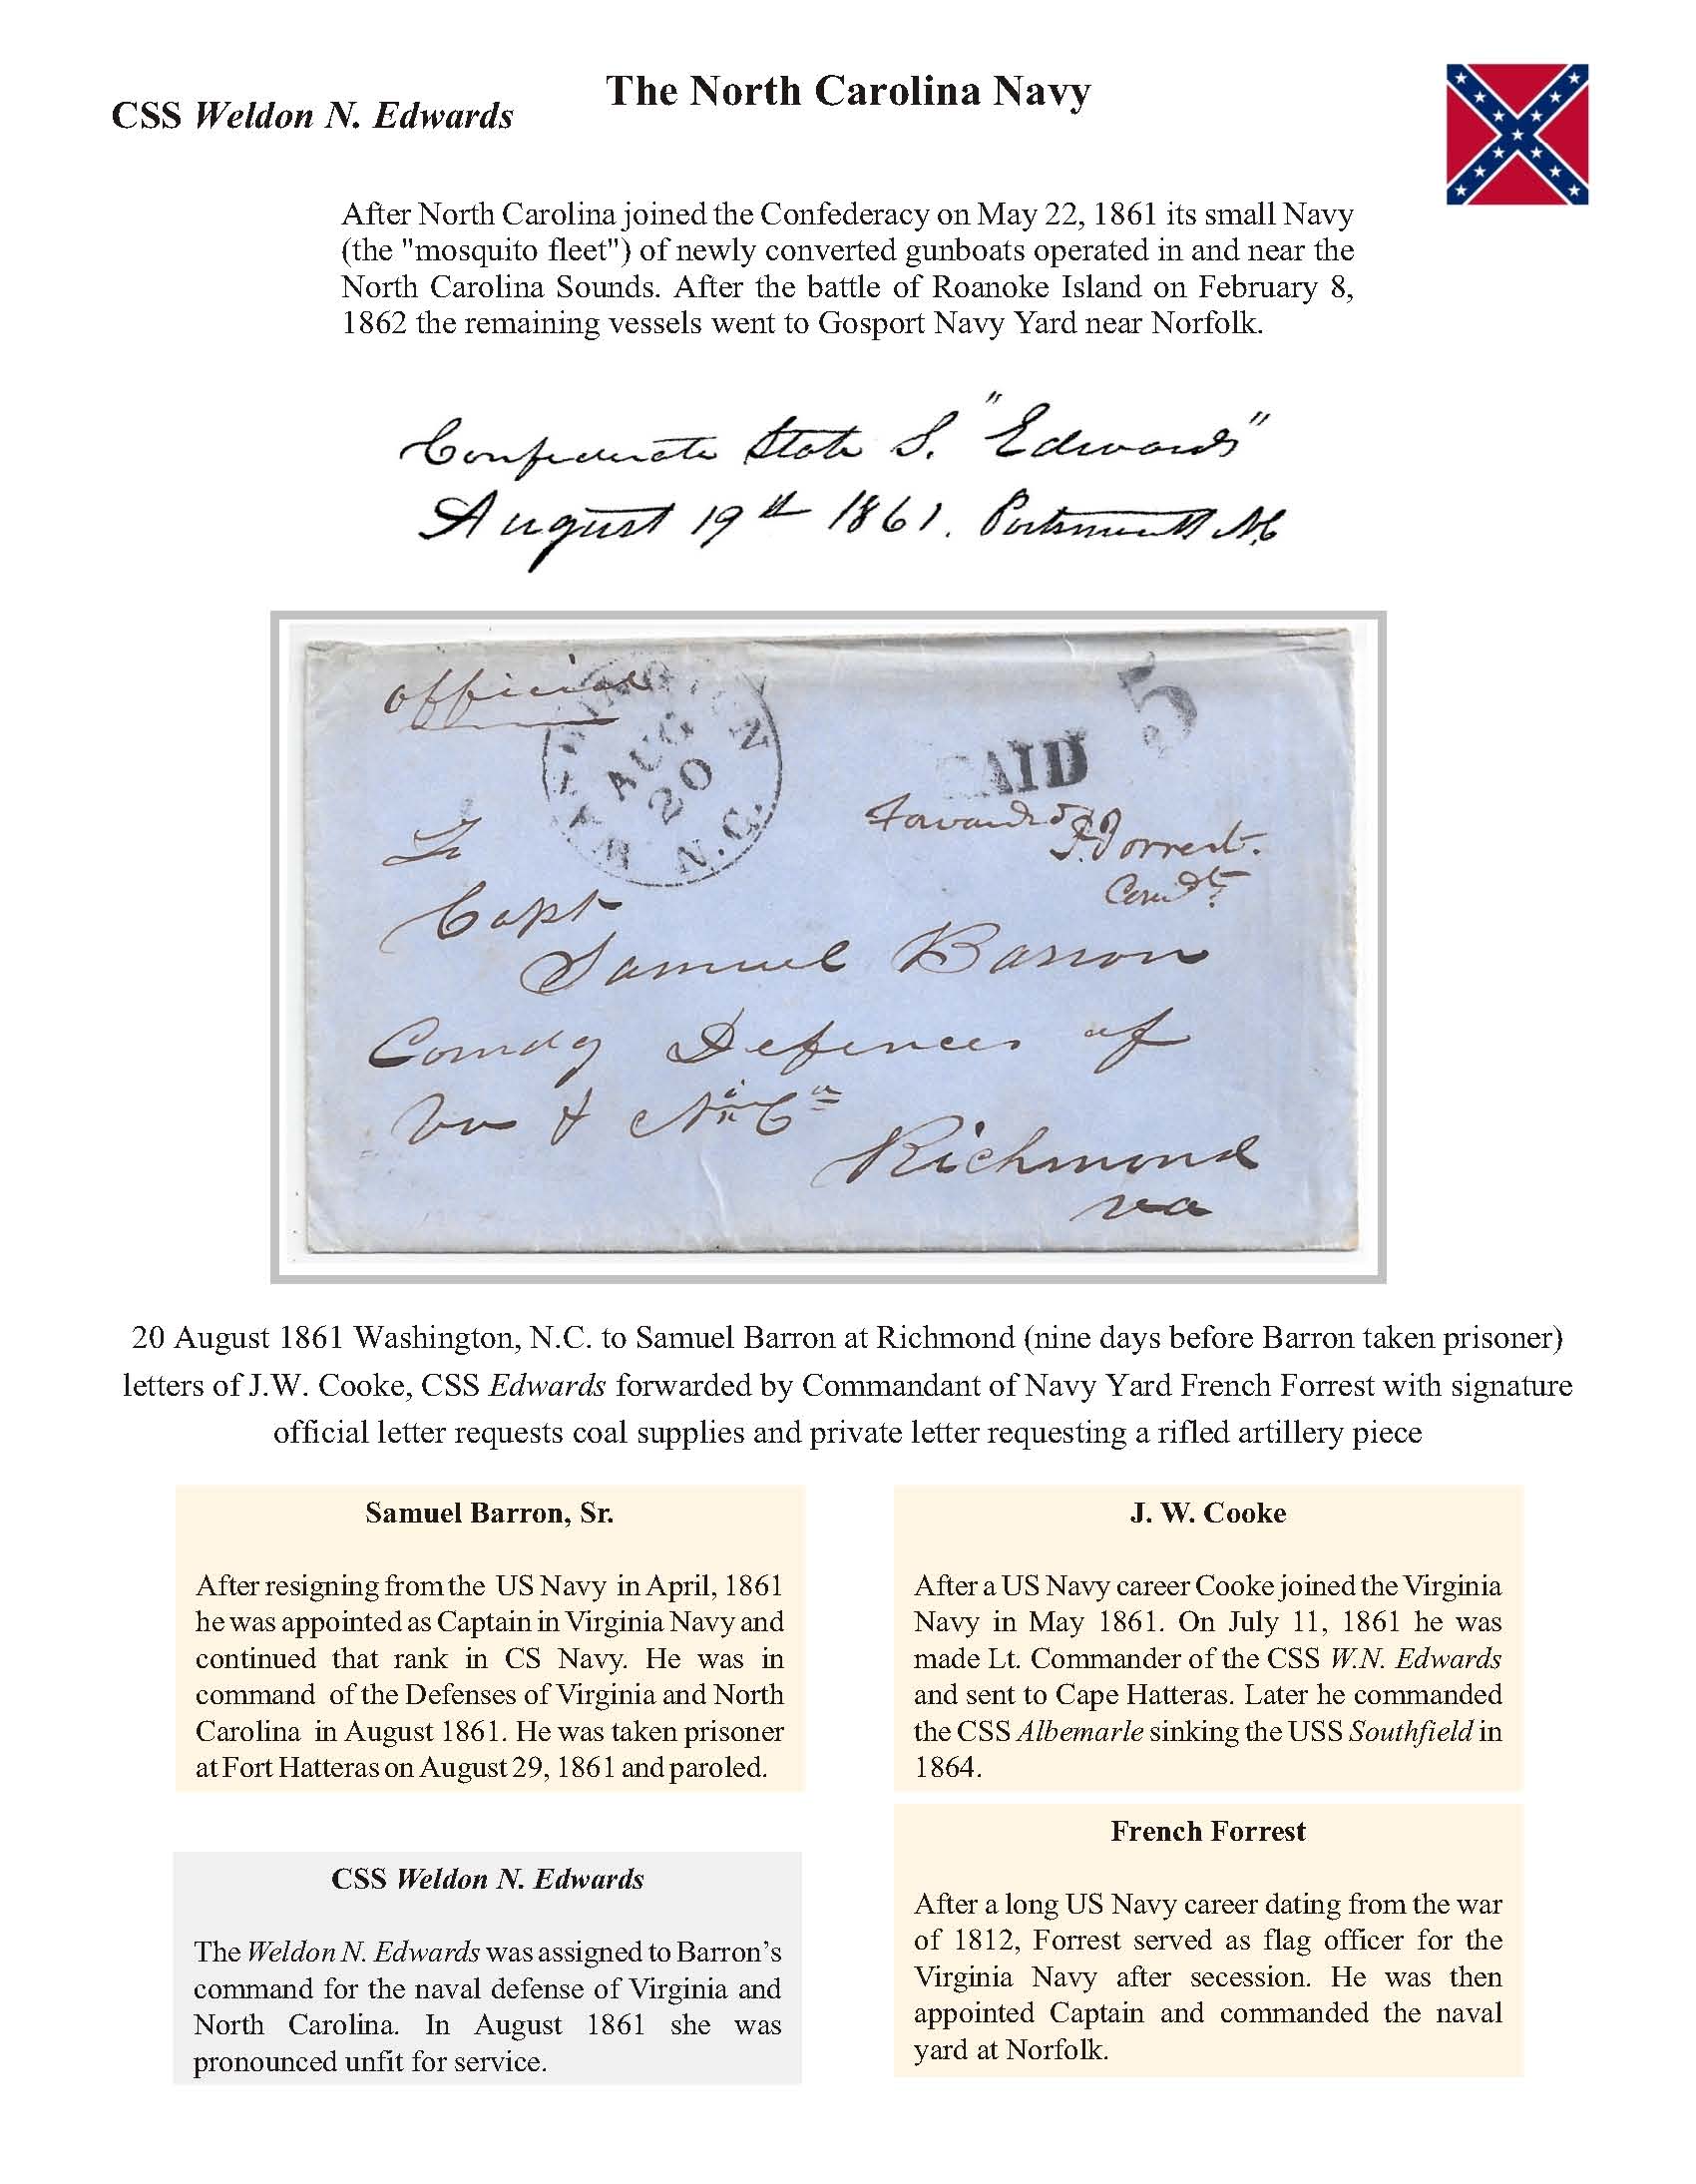 The North Carolina Navy
CSS Weldon N. Edwards
After North Carolina joined the Confederacy on May 22, 1861 its small Navy
(the "mosquito fleet") of newly converted gunboats operated in and near the
North Carolina Sounds. After the battle of Roanoke Island on February 8,
1862 the remaining vessels went to Gosport Navy Yard near Norfolk.
Confederate State S. "Edwards"
August 19th 1861. Portsmouth N.C
official
AUG
20
N.C.
PAID 5
Forwarded
F. Forrest.
Comdt
To
Capt
Samuel Barron
Comdg Defences of
Va & No Ca
Richmond
Va
20 August 1861 Washington, N.C. to Samuel Barron at Richmond (nine days before Barron taken prisoner)
letters of J.W. Cooke, CSS Edwards forwarded by Commandant of Navy Yard French Forrest with signature
official letter requests coal supplies and private letter requesting a rifled artillery piece
Samuel Barron, Sr.
After resigning from the US Navy in April, 1861
he was appointed as Captain in Virginia Navy and
continued that rank in CS Navy. He was in
command of the Defenses of Virginia and North
Carolina in August 1861. He was taken prisoner
at Fort Hatteras on August 29, 1861 and paroled.
J. W. Cooke
After a US Navy career Cooke joined the Virginia
Navy in May 1861. On July 11, 1861 he was
made Lt. Commander of the CSS W.N. Edwards
and sent to Cape Hatteras. Later he commanded
the CSS Albemarle sinking the USS Southfield in
1864.
CSS Weldon N. Edwards
The Weldon N. Edwards was assigned to Barron’s
command for the naval defense of Virginia and
North Carolina. In August 1861 she was
pronounced unfit for service.
French Forrest
After a long US Navy career dating from the war
of 1812, Forrest served as flag officer for the
Virginia Navy after secession. He was then
appointed Captain and commanded the naval
yard at Norfolk.